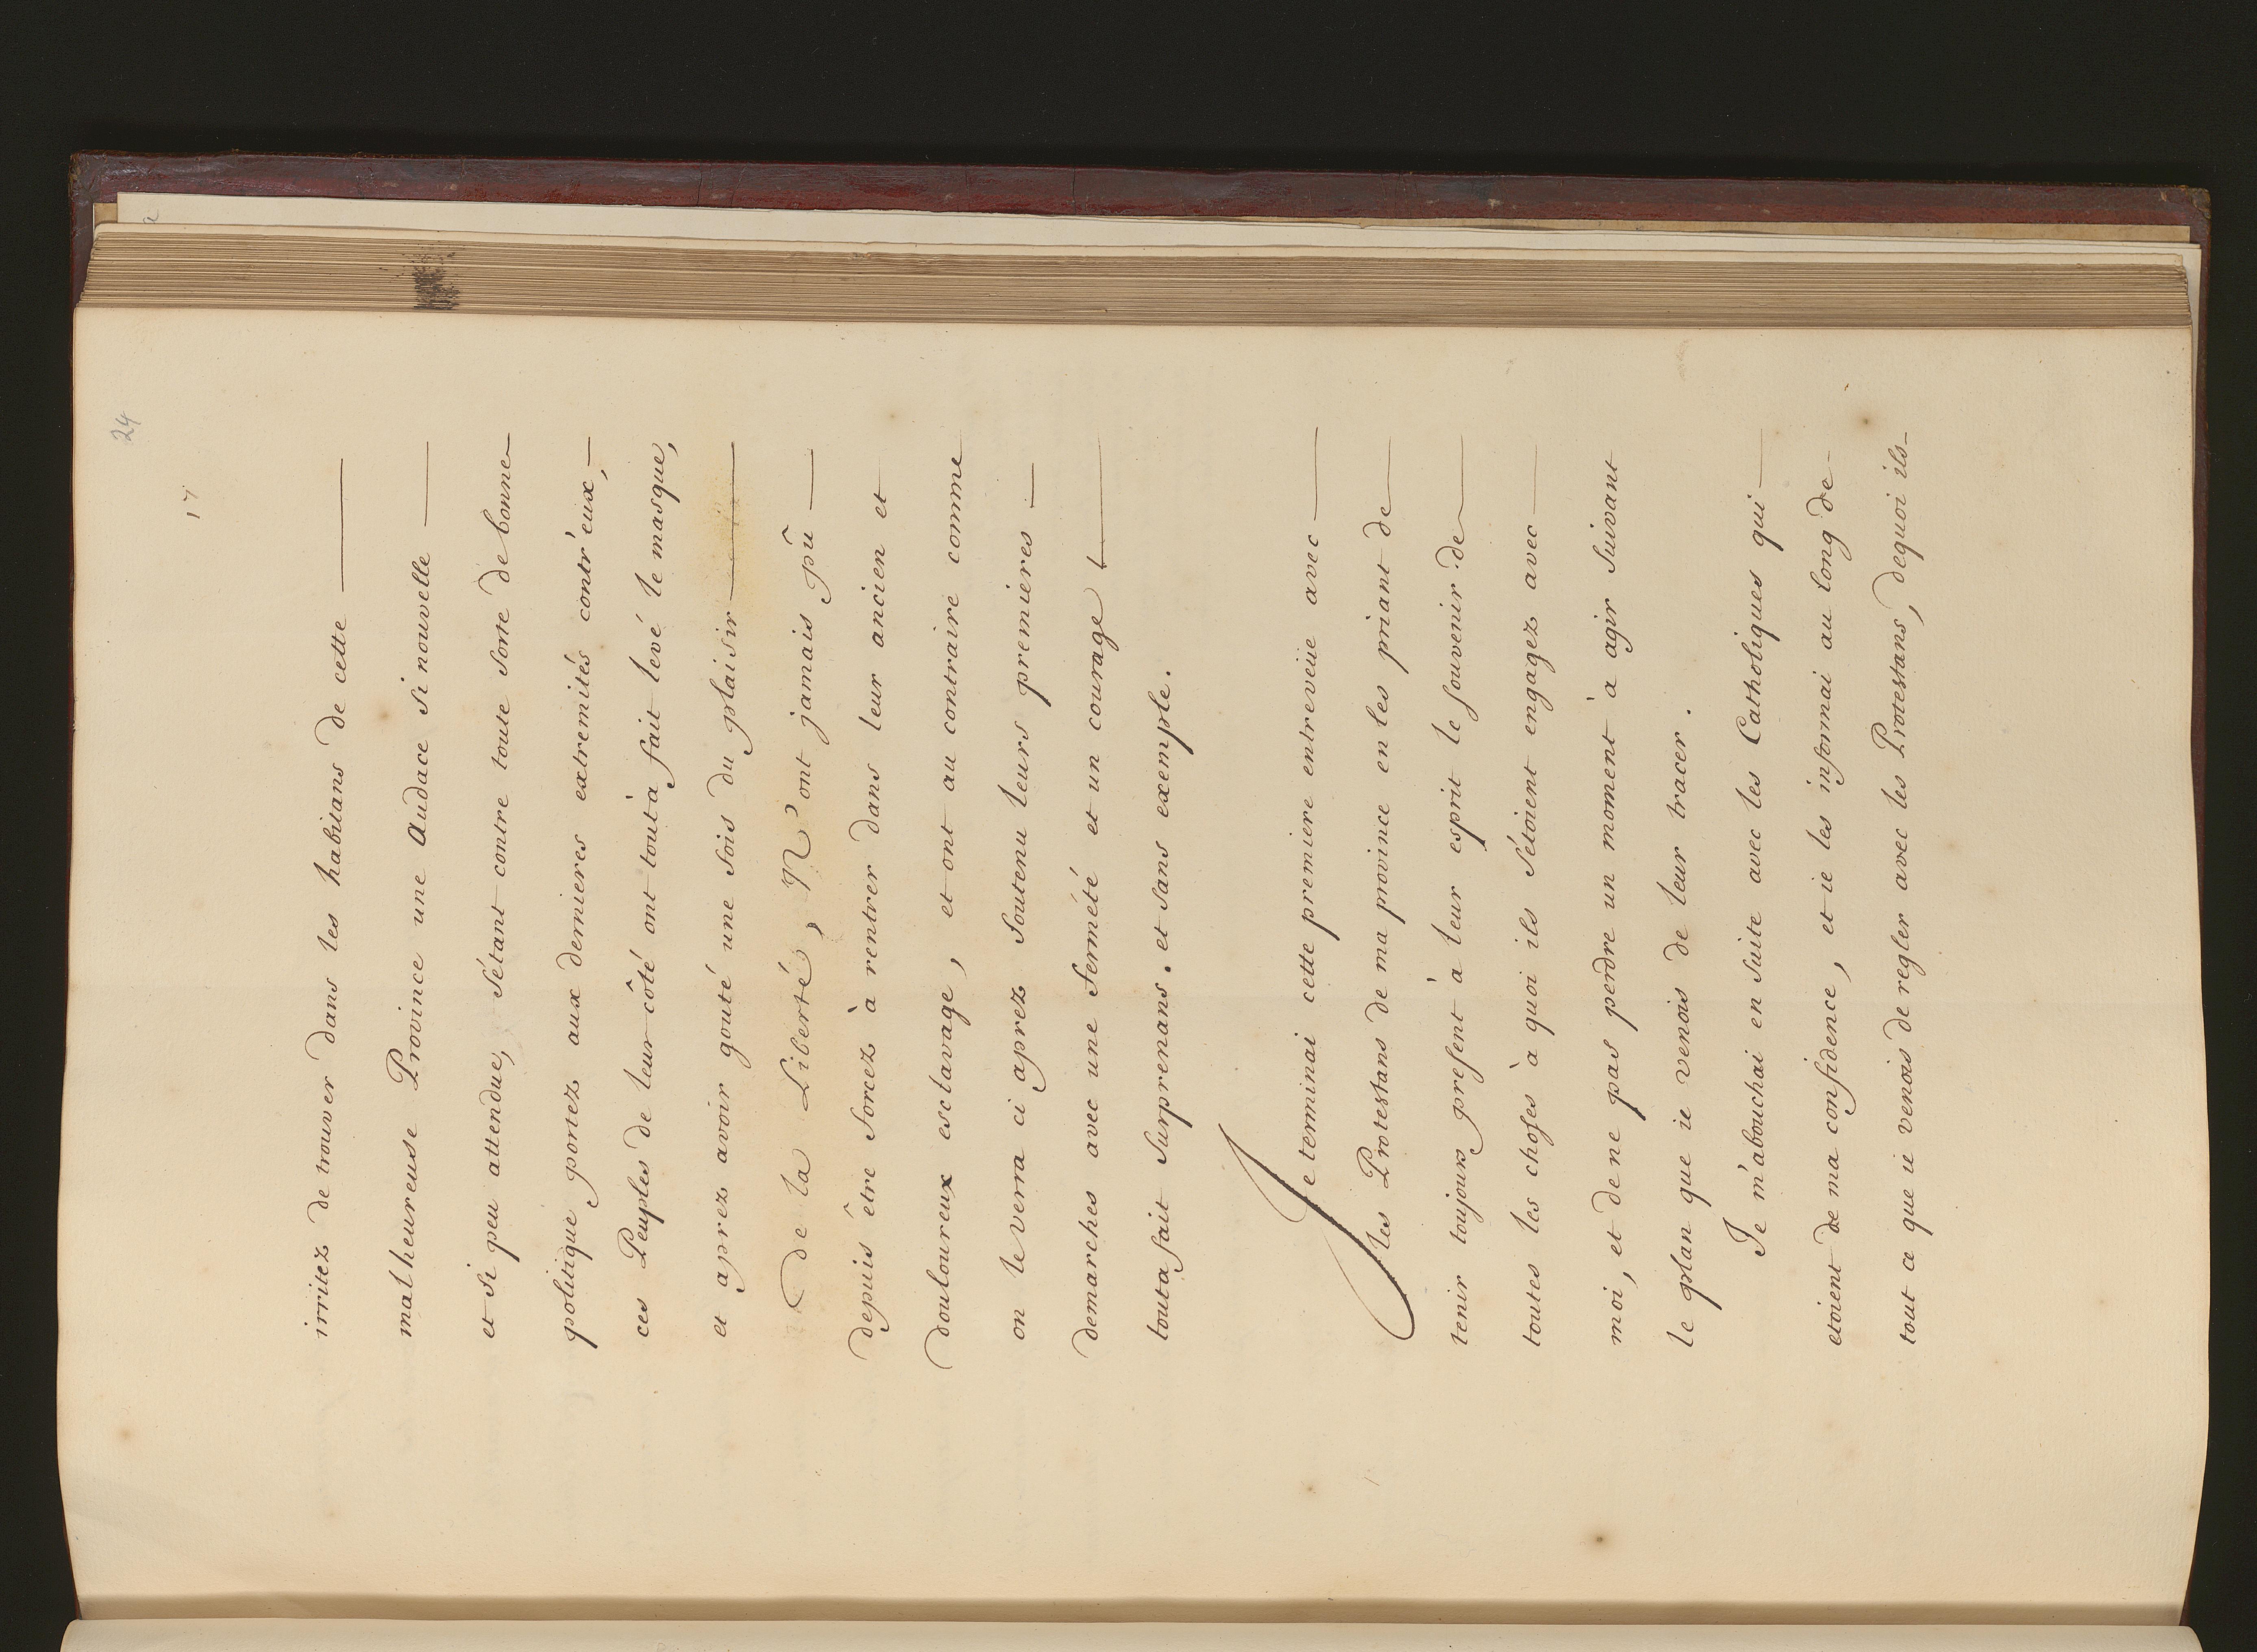 24
17
irritez de trouver dans les habitans de cette
malheureuse Province une Audace si nouvelle
et si peu attendue, s'étant contre toute sorte de bonne
politique portez aux dernieres extremités contr'eux,
ces Peuples de leur côté ont tout à fait levé le masque,
et aprez avoir gouté une fois du plaisir
de la Liberté, N'ont jamais pû
depuis être forcez à rentrer dans leur ancien et
douloureux esclavage, et ont au contraire comme
on le verra ci aprez soutenu leurs premieres
demarches avec une fermété et un courage
tout a fait surprenans. et sans exemple.
Je terminai cette premiere entreveüe avec
les Protestans de ma province en les priant de
tenir toujours present à leur esprit le souvenir de
toutes les choses à quoi ils s'étoient engagez avec
moi, et de ne pas perdre un moment à agir suivant
le plan que ie venois de leur tracer.
Je m'abouchai en suite avec les Catholiques qui
etoient de ma confidence, et ie les informai au long de
tout ce que ie venois de regler avec les Protestans, dequoi ils